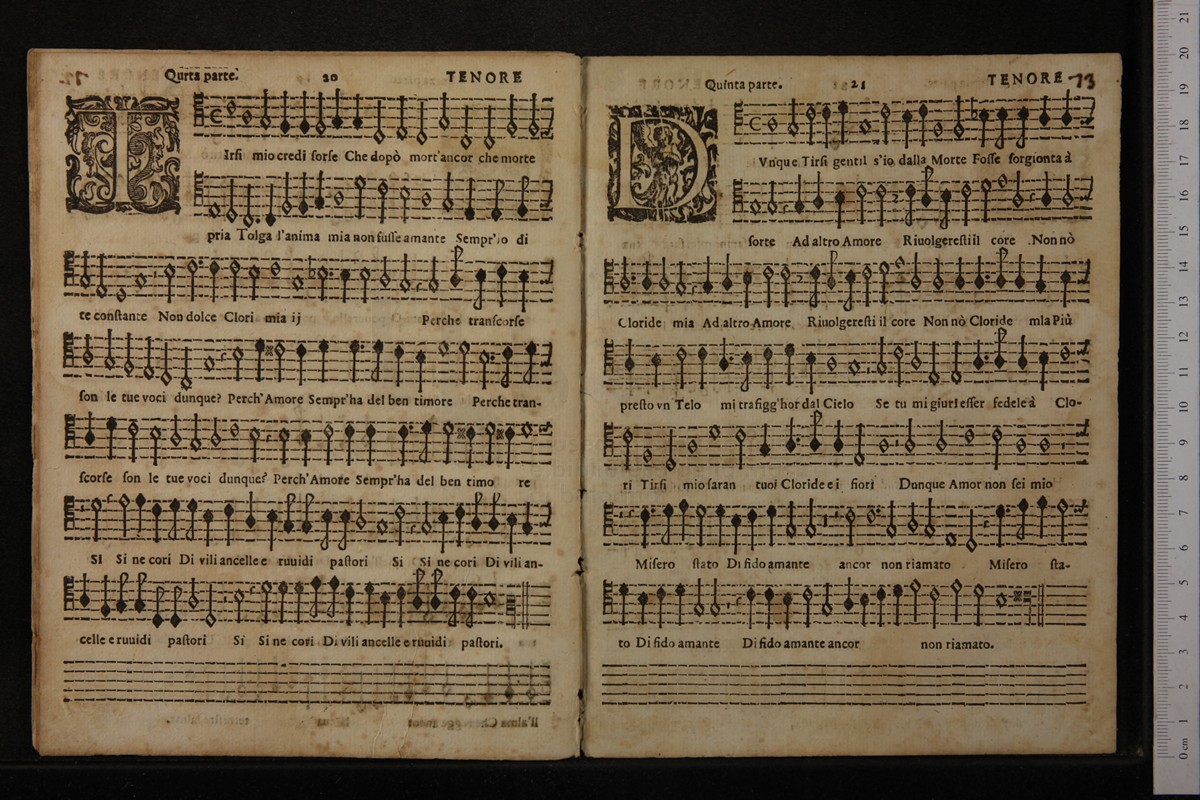 Qurta parte. 20 TENORE
T Irsi mio credi forse Che dopò mort'ancor che morte
pria Tolga l'anima mia non fusse amante Sempr'io di
te constante Non dolce Clori mia ij Perche transcorse
son le tue voci dunque? Perch'Amore Sempr'ha del ben timore Perche tran-
scorse son le tue voci dunque? Perch'Amore Sempr'ha del ben timo re
Si Si ne cori Di vili ancelle e ruuidi pastori Si Si ne cori Di vili an-
celle e ruuidi pastori Si Si ne cori Di vili ancelle e ruuidi pastori.
Quinta parte. 21 TENORE 13
D Vnque Tirsi gentil s'io dalla Morte Fosse sorgionta à
sorte Ad altro Amore Riuolgeresti il core Non nò
Cloride mia Ad altro Amore Riuolgeresti il core Non nò Cloride mIa Più
presto vn Telo mi trafigg'hor dal Cielo Se tu mi giuri esser fedele à Clo-
ri Tirsi mio saran tuoi Cloride e i fiori Dunque Amor non sei mio
Misero stato Di fido amante ancor non riamato Misero sta-
to Di fido amante Di fido amante ancor non riamato.
0 cm 1 2 3 4 5 6 7 8 9 10 11 12 13 14 15 16 17 18 19 20 21